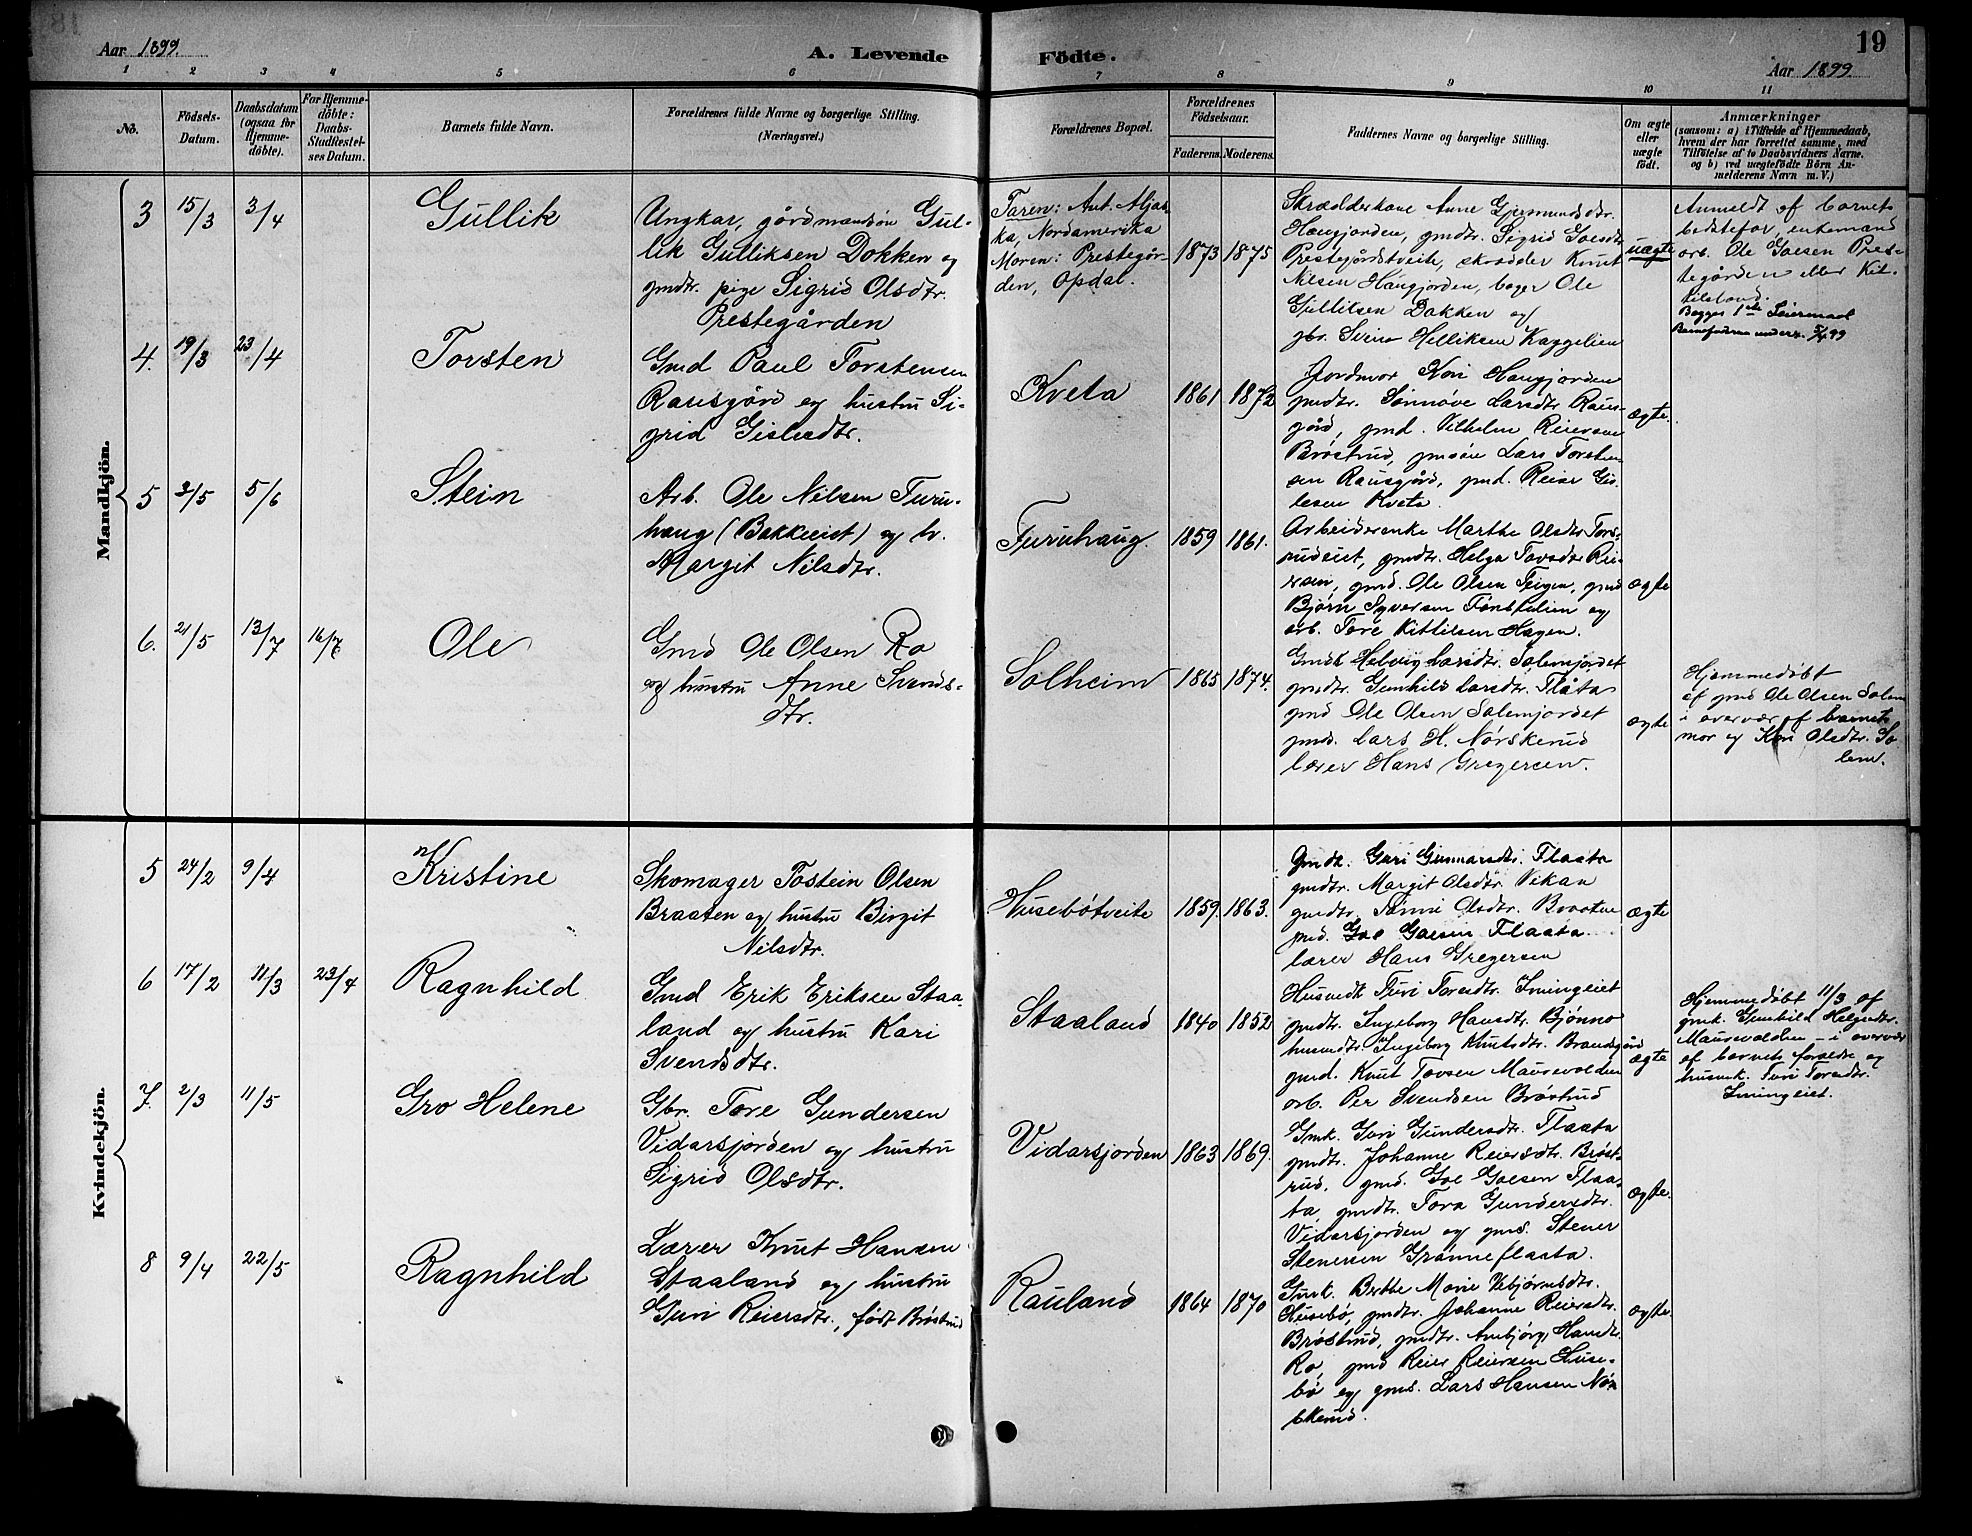 Aar 1899.
A. Levende Födte.
19
Aar 1899
1 2 3 4 5 6 7 8 9 10 11
No.
Födsels-
Datum.
Daabsdatum
(ogsaa for
Hjemme-
døbte).
For Hjemme-
døbte:
Daabs-
Stadfæstel-
ses Datum.
Barnets fulde Navn.
Forældrenes fulde Navne og borgerlige Stilling.
(Næringsvei.)
Forældrenes Bopæl.
Forældrenes
Födselsaar.
Faderens. Moderens.
Faddernes Navne og borgerlige Stilling.
Om ægte
eller
uægte
født.
Anmærkninger
(saasom: a) i Tilfælde af Hjemmedaab,
hvem der har forrettet samme, med
Tilföielse af to Daabsvidners Navne.
og b) ved uægtefödte Börn An-
melderens Navn m. V.)
Mandkjön.
3 15/3 3/4
Gullik
Ungkar, gårdmandsøn Gul-
lik Gulliksen Dokken og
gmdtr. pige Sigrid Olsdtr.
Prestegården
Faren: Ant. Aljas-
ka, Nordamerika
Moren: Prestegår-
den, Opdal.
1873 1875
Skrædderkone Anne Gjermundsdtr.
Haugjorden, gmdtr. Sigrid Goesdtr
Prestegårdstveite, skrædder Knut
Nilsen Haugjorden, bager Ole
Gullitsen Dokken og
gbr. Svein Helliksen Kaggelien
uægte
Anmeldt af barnets
bedstefar, enkemand
arb. Ole Goesen Pres-
tegården eller Kit-
tilsland.
Begges 1ste Leiermaal
4. 19/3 23/4
Torsten
Gmd Paul Torstensen
Rausgård og hustru Si-
grid Gislesdtr.
Kveta
1861 1872
Jordmor Kari Haugjorden
gmdtr. Sønnøve Larsdtr. Raus-
gård, gmd. Vilhelm Reiersen
Brøstrud, gmsøn Lars Torsten-
sen Rausgård, gmd. Reier Gis-
lesen Kveta.
ægte.
5 2/5 5/6
Stein
Arb. Ole Nilsen Furu-
haug (Bakkeeiet) og h.
Margit Nilsdtr.
Furuhaug.
1859 1861.
Arbeiderenke Marthe Olsdtr Tors-
rudeiet, gmdtr. Helga Tovsdtr Rei-
rsen, gmd. Ole Olsen Teigen, gmd
Bjørn Syversen Fønstelien og
arb. Tore Kittilsen Hagen.
ægte
6. 21/5 13/7 16/7
Ole
Gmd Ole Olsen Ro
og hustru Anne Svends-
dtr.
Solheim
1865 1874.
Gmdk Helvig Larsdtr. Solemjordet
gmdtr. Gunhild Larsdtr. Flåta
gmd Ole Olsen Solemjordet
gmd. Lars H. Nørskerud
lærer Hans Gregersen.
ægte
Hjemmedøbt
af gmd Ole Olsen Solem
i overvær af barnets
mor og Kari Olsdtr. So-
lem.
Kvindekjön.
5 24/2 9/4
Kristine
Skomager Tostein Olsen
Braaten og hustru Birgit
Nilsdtr.
Husebøtveite
1859. 1863.
Gmdk. Guri Gunnarsdtr. Flaata
gmdtr. Margit Olsdtr. Vikan
gmdtr. Tønne Olsdtr. Braaten
gmd. Goe Goesen Flaata.
lærer Hans Gregersen
ægte
6 17/2 11/3 23/4
Ragnhild
Gmd Erik Eriksen Staa-
land og hustru Kari
Svendsdtr.
Staaland
1840 1852
Husmdk Turi Torsdtr. Imingeiet
gmdtr. Ingeborg Hansdtr. Bjønno
husmdtr. Ingeborg Knutsdtr. Brandsgård
gmd. Knut Tovsen Maurevolden
arb. Per Svendsen Brøstrud
ægte
Hjemmedøbt 11/3 af
gmk. Gunhild Helgesdtr.
Maurevolden – i overvær
af barnets forældre og
husmk. Turi Torsdtr.
Imingeiet.
7. 2/3 11/5
Gro Helene
Gbr. Tore Gundersen
Vidarsjorden og hustru
Sigrid Olsdtr.
Vidarsjorden
1863 1869.
Gmk. Guri Gundersdtr. Flaata
gmdtr. Johanne Reiersdtr. Brøst-
rud. gmd. Goe Goesen Flaa-
ta gmdtr. Tora Gundersdtr.
Vidarsjorden og gmd. Stener
Stenersen Grønneflaata.
ægte.
8 9/4 22/5
Ragnhild
Lærer Knut Hansen
Staaland og hustru
Guri Reiersdtr., født Brøstrud
Rauland
1864 1870
Gmk. Berthe Marie Vebjørnsdtr.
Husebø, gmdtr. Johanne Reiersdtr.
Brøstrud, gmdtr. Ambjørg Hansdtr.
Ro, gmd Reier Reiersen Huse-
bø og gmd. Lars Hansen Nør-
skerud.
ægte.